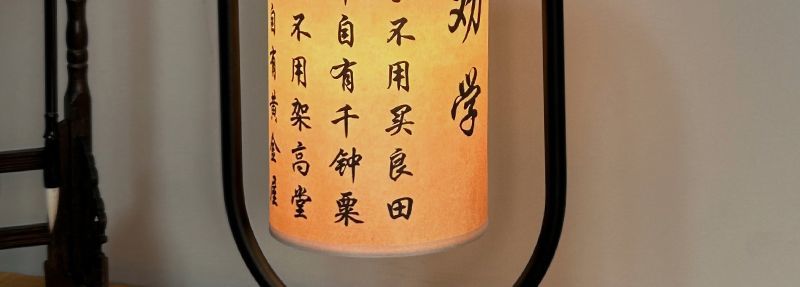 劝学
不用买良田
自有千钟粟
不用架高堂
自有黄金屋